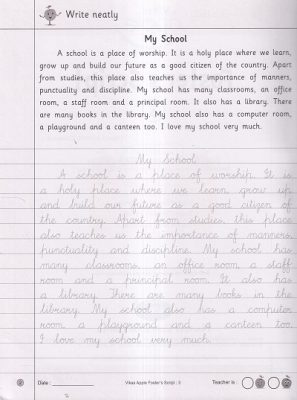 Write neatly
My School
A school is a place of worship. It is a holy place where we learn,
grow up and build our future as a good citizen of the country. Apart
from studies, this place also teaches us the importance of manners,
punctuality and discipline. My school has many classrooms, an office
room, a staff room and a principal room. It also has a library. There
are many books in the library. My school also has a computer room,
a playground and a canteen too. I love my school very much.
My School
A school is a place of worship. It is
a holy place where we learn, grow up
and build our future as a good citizen of
the country. Apart from studies, this place
also teaches us the importance of manners,
punctuality and discipline. My school has
many classrooms, an office room, a staff
room and a principal room. It also has
a library. There are many books in the
library. My school also has a computer
room, a playground and a canteen too.
I love my school very much.
Date : 
Vikas Apple Foster's Script : 5
Teacher is :